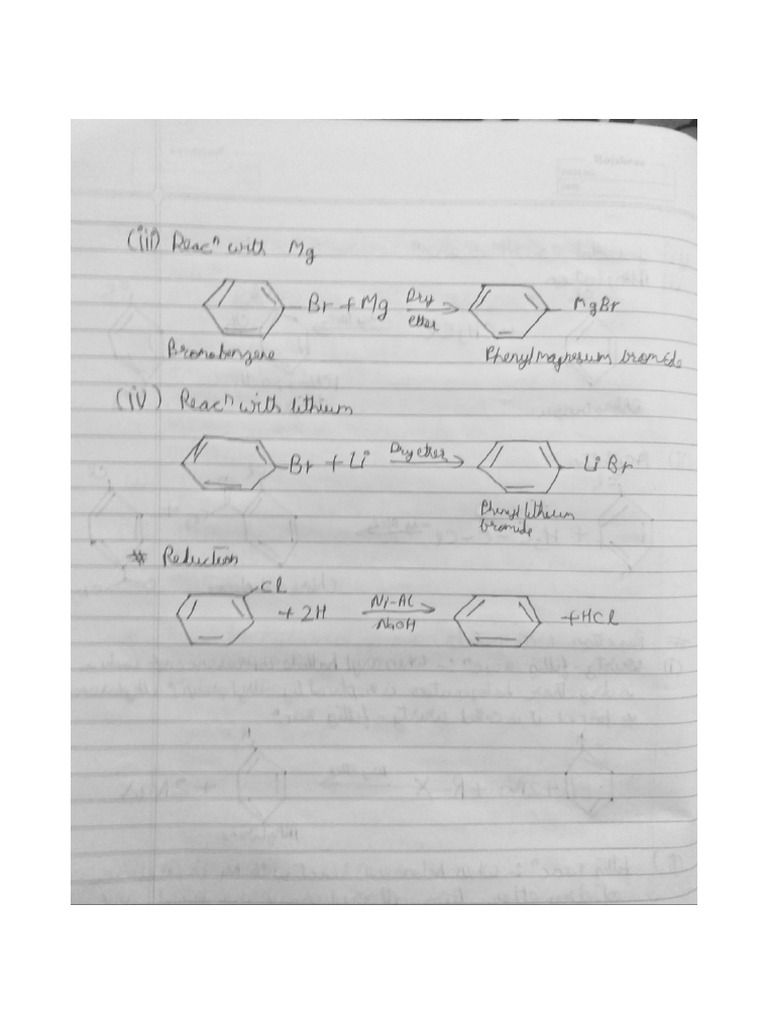 (iii) Reacⁿ with Mg
Br + Mg Dry ether → MgBr
Bromobenzene Phenylmagnesium bromide
(iv) Reacⁿ with lithium
Br + Li Dry ether → Li Br
Phenyl lithium
bromide
* Reduction
Cl
+ 2H Ni-Al NaOH → + HCl